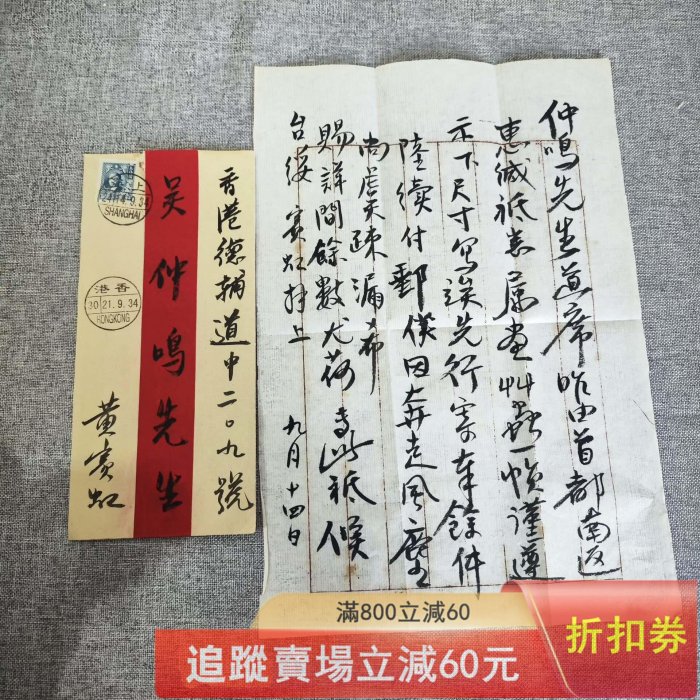 仲鳴先生道席昨由首都南返
惠緘祗悉屬畫艸蟲一幀謹遵
示下尺寸寫先行寄奉餘件
陸續付郵僕因奔走風塵
尚虞疎漏希
賜詳問餘數尤荷 專此祗候
台綏 賓虹拜上
九月十四日
香港德輔道中二〇九號
吳仲鳴先生
黃賓虹
上
SHANGHAI
港香
21.9.34
HONGKONG
滿800立減60
追蹤賣場立減60元
折扣券